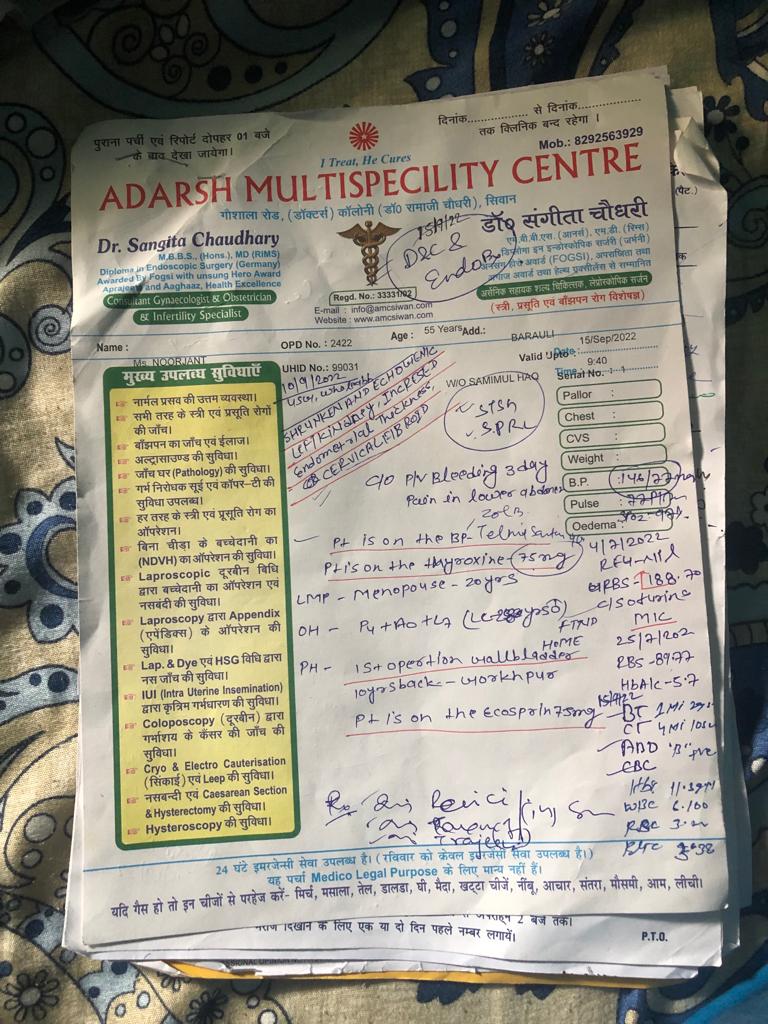 पुराना पर्ची एवं रिपोर्ट दोपहर 01 बजे
के बाद देखा जायेगा।
दिनांक.................. से दिनांक..................
तक क्लिनिक बन्द रहेगा ।
Mob.: 8292563929
I Treat, He Cures
ADARSH MULTISPECILITY CENTRE
गौशाला रोड, (डॉक्टर्स) कॉलोनी (डॉ0 रामाजी चौधरी), सिवान
Dr. Sangita Chaudhary
M.B.B.S., (Hons.), MD (RIMS)
Diploma in Endoscopic Surgery (Germany)
Awarded By Fogsi with unsung Hero Award
Aprajeeta and Aaghaaz, Health Excellence
Consultant Gynaecologist & Obstetrician
& Infertility Specialist
15/9/22
D&C &
EndoBx
Regd. No.: 33331/02
E-mail : info@amcsiwan.com
Website : www.amcsiwan.com
डॉ0 संगीता चौधरी
एम.बी.बी.एस. (आनर्स), एम.डी. (रिम्स)
डिप्लोमा इन इन्डोस्कोपिक सर्जरी (जर्मनी)
अवार्ड (FOGSI), अपराजिता तथा
आगाज अवार्ड तथा हेल्थ एक्सीलेंस से सम्मानित
(स्त्री, प्रसूति एवं बाँझपन रोग विशेषज्ञ)
Name :
Ms. NOORJANT
OPD No. : 2422
UHID No. : 99031
Age : 55 Years
Add.: BARAULI
W/O SAMIMUL HAQ
15/Sep/2022
Valid Upto :
Date :
Time : 9:40
Serial No. : 1
मुख्य उपलब्ध सुविधाएँ
नार्मल प्रसव की उत्तम व्यवस्था।
सभी तरह के स्त्री एवं प्रसूति रोगों
की जाँच।
बाँझपन का जाँच एवं ईलाज।
अल्ट्रासाउण्ड की सुविधा।
जाँच घर (Pathology) की सुविधा।
गर्भ निरोधक सूई एवं कॉपर-टी की
सुविधा उपलब्ध।
हर तरह के स्त्री एवं प्रसूति रोग का
ऑपरेशन।
बिना चीड़ा के बच्चेदानी का
(NDVH) का ऑपरेशन की सुविधा।
Laproscopic दूरबीन बिधि
द्वारा बच्चेदानी का ऑपरेशन एवं
नसबंदी की सुविधा।
Laproscopy द्वारा Appendix
(एपेंडिक्स) के ऑपरेशन की
सुविधा।
Lap. & Dye एवं HSG विधि द्वारा
नस जाँच की सुविधा।
IUI (Intra Uterine Insemination)
द्वारा कृत्रिम गर्भधारण की सुविधा।
Coloposcopy (दूरबीन) द्वारा
गर्भाशय के कैंसर की जाँच की
सुविधा।
Cryo & Electro Cauterisation
(सिंकाई) एवं Leep की सुविधा।
नसबन्दी एवं Caesarean Section
& Hysterectomy की सुविधा।
Hysteroscopy की सुविधा।
10/9/2022
SHRUNKEN AND ECHOGENIC
LEFT KIDNEY, INCRESED
Endometrial Thickness,
CERVICAL FIBROID
Pallor :
Chest :
CVS :
Weight :
B.P. : 146/77
Pulse : 77
Oedema :
C/o P/V Bleeding 3 day
Pain in lower abdomen
Pt is on the BP- Telmi
Pt is on the thyroxine- 75mg
LMP - Menopouse - 20yrs
OH - P4+A0+L7
PH - 1st opertion wallbladder
10yrs back - workhpur
Pt is on the Ecosprin 75mg
4/7/2022
188.70
C/S of urine
MIC
25/7/202
RBS - 8977
HbA1c - 5.7
15/9/22
BT
CT
ABO "B" +ve
CBC
WBC 6.100
RBC
24 घंटे इमरजेन्सी सेवा उपलब्ध है। (रविवार को केवल इमरजेंसी सेवा उपलब्ध है।)
यह पर्चा Medico Legal Purpose के लिए मान्य नहीं हैं।
यदि गैस हो तो इन चीजों से परहेज करें- मिर्च, मसाला, तेल, डालडा, घी, मैदा, खट्टा चीजें, नींबू, आचार, संतरा, मौसमी, आम, लीची।
मरीज दिखाने के लिए एक या दो दिन पहले नम्बर लगायें।
2 बजे तक।
P.T.O.